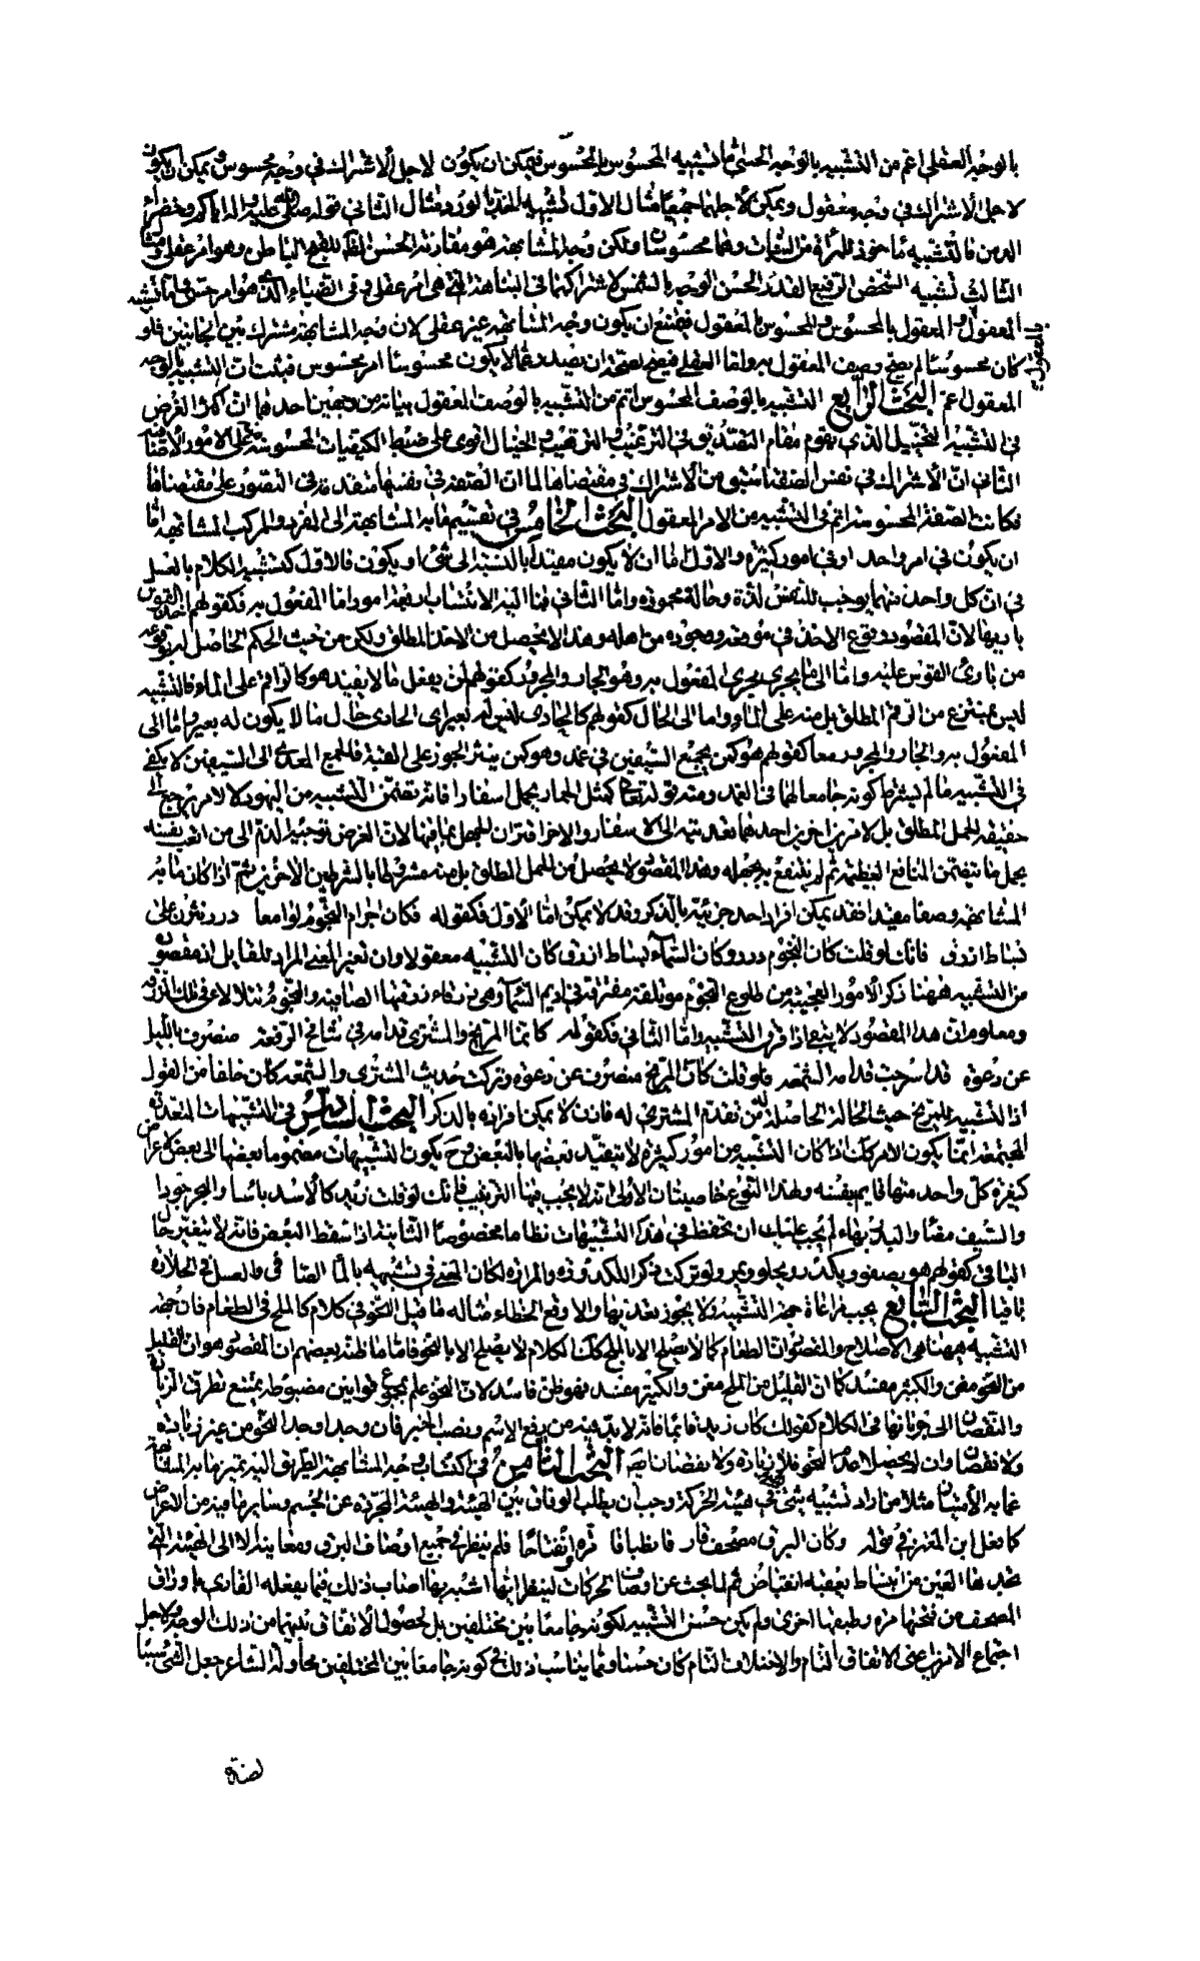 بالوجه العقلى اعم من التشبيه بالوجه الحسى فما تشبيه المحسوس بالمحسوس فيمكن ان يكون لاجل الاشتراك فى وجه محسوس و يمكن ان يكون
لاجل الاشتراك فى وجه معقول ويمكن لاجلهما جميعا مثال الاول تشبيه الخد بالورد ومثال الثانى قوله صلى الله عليه واله اياكم وخضراء
الدمن فالتشبيه ماخوذ للمراة من النبات وهما محسوسان ولكن وجه المشابهة هو مقارنة الحسن الظاهر للقبح الباطن وهو امر عقلى ومثال
الثالث تشبيه الشخص الرفيع القدر الحسن الوجه بالشمس لاشتراكهما فى النباهة التى هى امر عقلى وفى الضياء الذى هو امر حسى واما تشبيه
المعقول بالمعقول و المعقول بالمحسوس والمحسوس بالمعقول فيمتنع ان يكون وجه المشابهة غير عقلى لان وجه المشابهة مشترك بين الجانبين فلو
كان محسوسا لم يصح وصف المعقول به واما العقلى فيصح لصحة ان يصدر عما لا يكون محسوسا امر محسوس فثبت ان التشبيه بالوجه
المعقول اعم البحث الرابع التشبيه بالوصف المحسوس اتم من التشبيه بالوصف المعقول بيانه من وجهين احدهما ان اكثر الغرض
فى التشبيه التخييل الذى يقوم مقام التصديق فى الترغيب والترهيب والخيال اقوى على ضبط الكيفيات المحسوسة منه على الامور الاضافية
الثانى ان الاشتراك فى نفس الصفة اسبق من الاشتراك فى مقتضاها لما ان الصفة فى نفسها متقدمة فى التصور على مقتضاها
فكانت الصفة المحسوسة اتم فى التشبيه من الامر المعقول البحث الخامس فى تقسيم ما به المشابهة الى المفرد والمركب المشابهة اما
ان يكون فى امر واحد او فى امور كثيرة والاول اما ان لا يكون مقيدا بالنسبة الى شئ او يكون فالاول كتشبيه الكلام بالعسل
فى ان كل واحد منهما يوجب للنفس لذة وحالة محمودة واما الثانى فما اليه الانتساب اربعة امور اما المفعول به فكقولهم اخذ القوس
باريها لان المقصود وقوع الاخذ فى موقعه ووجوده من اهله وهذا لا يحصل من الاخذ المطلق ولكن من حيث الحكم الحاصل له بوقوعه
من بارى القوس عليه واما الى ما يجرى مجرى المفعول به وهو الجار والمجرور كقولهم لمن يفعل ما لا يفيد هو كالراقم على الماء فالتشبيه
ليس بمنتزع من الرقم المطلق بل منه على الماء واما الى الحال كقولهم كالحادى وليس له بعير اى الحادى حال ما لا يكون له بعير واما الى
المفعول به والجار والمجرور معا كقولهم هو كمن يجمع السيفين فى غمد وهو كمن ينثر الجوز على القبة فالجمع المعدى الى السيفين لا يكفى
فى التشبيه ما لم يشترط كونه جامعا لهما فى الغمد ومنه قوله تعالى كمثل الحمار يحمل اسفارا فانه تضمن التشبيه من اليهود لا لامر يرجع الى
حقيقة الحمل المطلق بل لامرين اخرين احدهما تعديته الى الاسفار والاخر اقتران الجهل بما فيها لان الغرض توجيه الذم الى من اتعب نفسه
بحمل ما يتضمن المنافع العظيمة ثم لم ينتفع به لجهله وهذا المقصود لا يحصل من الحمل المطلق بل منه مشروطا بالشرطين الاخرين ثم اذا كان ما به
المشابهة وصفا مقيدا فقد يمكن افراد احد جزئيه بالذكر وقد لا يمكن اما الاول فكقوله فكان اجرام النجوم لوامعا درر نثرن على
بساط ازرق فانك لو قلت كان النجوم درر وكان السماء بساط ازرق كان التشبيه معقولا وان تغير المعنى المراد للقايل اذ مقصوده
من التشبيه ههنا ذكر الامور العجيبة من طلوع النجوم مؤتلفة مفترقة فى اديم السماء وهى زرقاء زرقتها الصافية والنجوم تتلالا فى تلك الزرقة
ومعلوم ان هذا المقصود لا يبقى اذا فرق التشبيه واما الثانى فكقوله كانما المريخ والمشترى قدامه فى شامخ الرفعة منصرف بالليل
عن دعوة قد اسرجت قدامه الشمعة فلو قلت كان المريخ منصرف عن دعوة وتركت حديث المشترى والشمعة كان خلفا من القول
اذ التشبيه للمريخ حيث الحالة الحاصلة له من تقدم المشترى له فانه لا يمكن افراده بالذكر البحث السادس فى التشبيهات المتعددة
المجتمعة انما يكون الامر كك اذا كان التشبيه من امور كثيرة لا يتقيد بعضها بالبعض وح يكون التشبيهات مضموما بعضها الى بعض لاغراض
كثيرة كل واحد منها قايم بنفسه ولهذا النوع خاصيتان الاولى انه لا يجب فيها الترتيب فانك لو قلت زيد كالاسد باسا والبحر جودا
والسيف مضاء والبدر بهاء لم يجب عليك ان تحفظ فى هذه التشبيهات نظاما مخصوصا الثانية اذا سقط البعض فانه لا يتغير حال
الباقى كقولهم هو يصفو ويكدر ويحلو ويمر ولو تركت ذكر الكدورة والمرارة لكان المعنى فى تشبيهه بالماء الصافى والعسل فى الحلاوة
باقيا البحث السابع يجب مراعاة جهة التشبيه ولا يجوز تعديها والا وقع الخطاء مثاله ما قيل النحو فى كلام كالملح فى الطعام فان وجه
التشبيه ههنا هى الاصلاح والمقصود ان الطعام كما لا يصلح الا بالملح كك الكلام لا يصلح الا بالنحو فاما ما ظنه بعضهم ان المقصود هو ان القليل
من النحو مغن والكثير مفسد كما ان القليل من الملح مغن والكثير مفسد فهو ظن فاسد لان النحو علم بمجموع قوانين مضبوطة يمتنع تطرق الزيادة
والنقصان الى جريانها فى الكلام كقولك كان زيد قائما فانه لا بد فيه من رفع الاسم ونصب الخبر فان وجدا وجد النحو من غير زيادة
ولا نقصان وان لم يحصلا عدم النحو فلا زيادة ولا نقصان فيه البحث الثامن فى اكتساب وجه المشابهة الطريق اليه تمييز ما به المشابهة
عما به الامتياز مثلا من اراد تشبيه شئ بشئ فى هيئة الحركة وجب ان يطلب الوفاق بين الهيئة والهيئة المجردة عن الجسم وساير ما فيه من الاعراض
كما فعل ابن المعتز فى قوله وكان البرق مصحف قار فانطباقا مرة وانفتاحا فلم ينظر فى جميع اوصاف البرق ومعانيه الا الى الهيئة التى
تجدها العين من انبساط يعقبه انقباض ثم لما بحث عن اوصاف الحركات لينظر ايها اشبه بها اصاب ذلك فيما يفعله القارى باوراق
المصحف من فتحها مرة وطبقها اخرى ولم يكن حسن التشبيه لكونه جامعا بين مختلفين بل لحصول الاتفاق بينهما من ذلك الوجه ولاجل
اجتماع الامرين اعنى الاتفاق التام والاختلاف التام كان حسنا ومما يناسب ذلك فى كونه جامعا بين المختلفين محاولة الشاعر جعل الشئ سببا
لضده